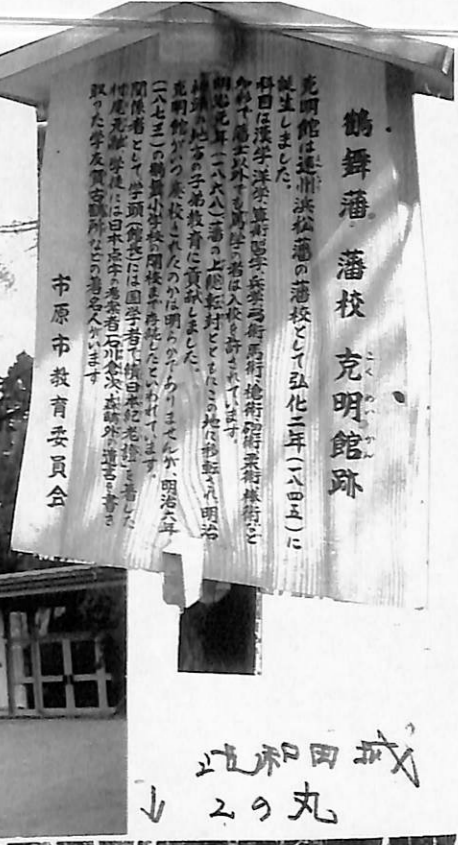 鶴舞藩 藩校 克明館跡
こくめいかん
克明館は遠州浜松藩の藩校として弘化二年(一八四五)に
誕生しました。
科目は漢学、洋学、算術、習字、兵学、弓術、馬術、槍術、砲術、柔術、棒術など
多彩で藩士以外でも篤学の者は入校を許されています。
明治元年(一八六八)藩の上総転封とともにこの地に移転され、明治
初頭の地方の子弟教育に貢献しました。
克明館がいつ廃校されたのかは明らかでありませんが、明治六年
(一八七三)の鶴舞小学校の開校まで存続したといわれています。
関係者として学頭(館長)には国学者で「続日本紀考證」を著した
村尾元融、学徒には日本点字の考案者石川倉次、森鷗外の遺言を書き
取った学友賀古鶴所などの著名人がいます
市原市教育委員会
和田城
↓ 2の丸